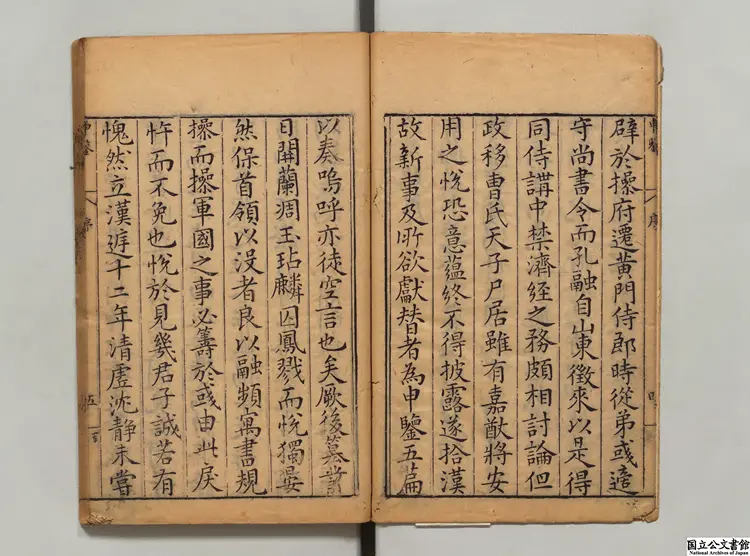 申鑒
序
辟於操府遷黃門侍郎時從弟彧適
守尚書令而孔融自山東徵來以是得
同侍講中禁濟經之務頗相討論但
政移曹氏天子尸居雖有嘉猷將安
用之悅恐意蘊終不得披露遂拾漢
故新事及所欲獻替者為申鑒五篇
以奏嗚呼亦徒空言也矣厥後
日開蘭凋玉玷麟囚鳳戮而悅獨晏
然保首領以没者良以融頻寓書規
操而操軍國之事必籌於彧由此戾
忤而不免也悅於見幾君子誠若有
愧然立漢廷十二年清虛沈靜未嘗
申鑒
序
五
国立公文書館
National Archives of Japan